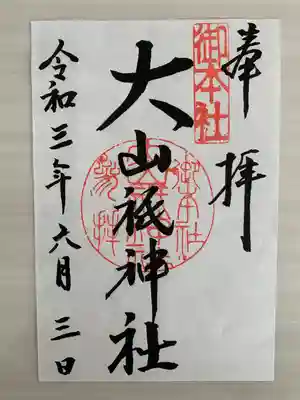 奉拝
御本社
大山祇神社
令和三年六月三日